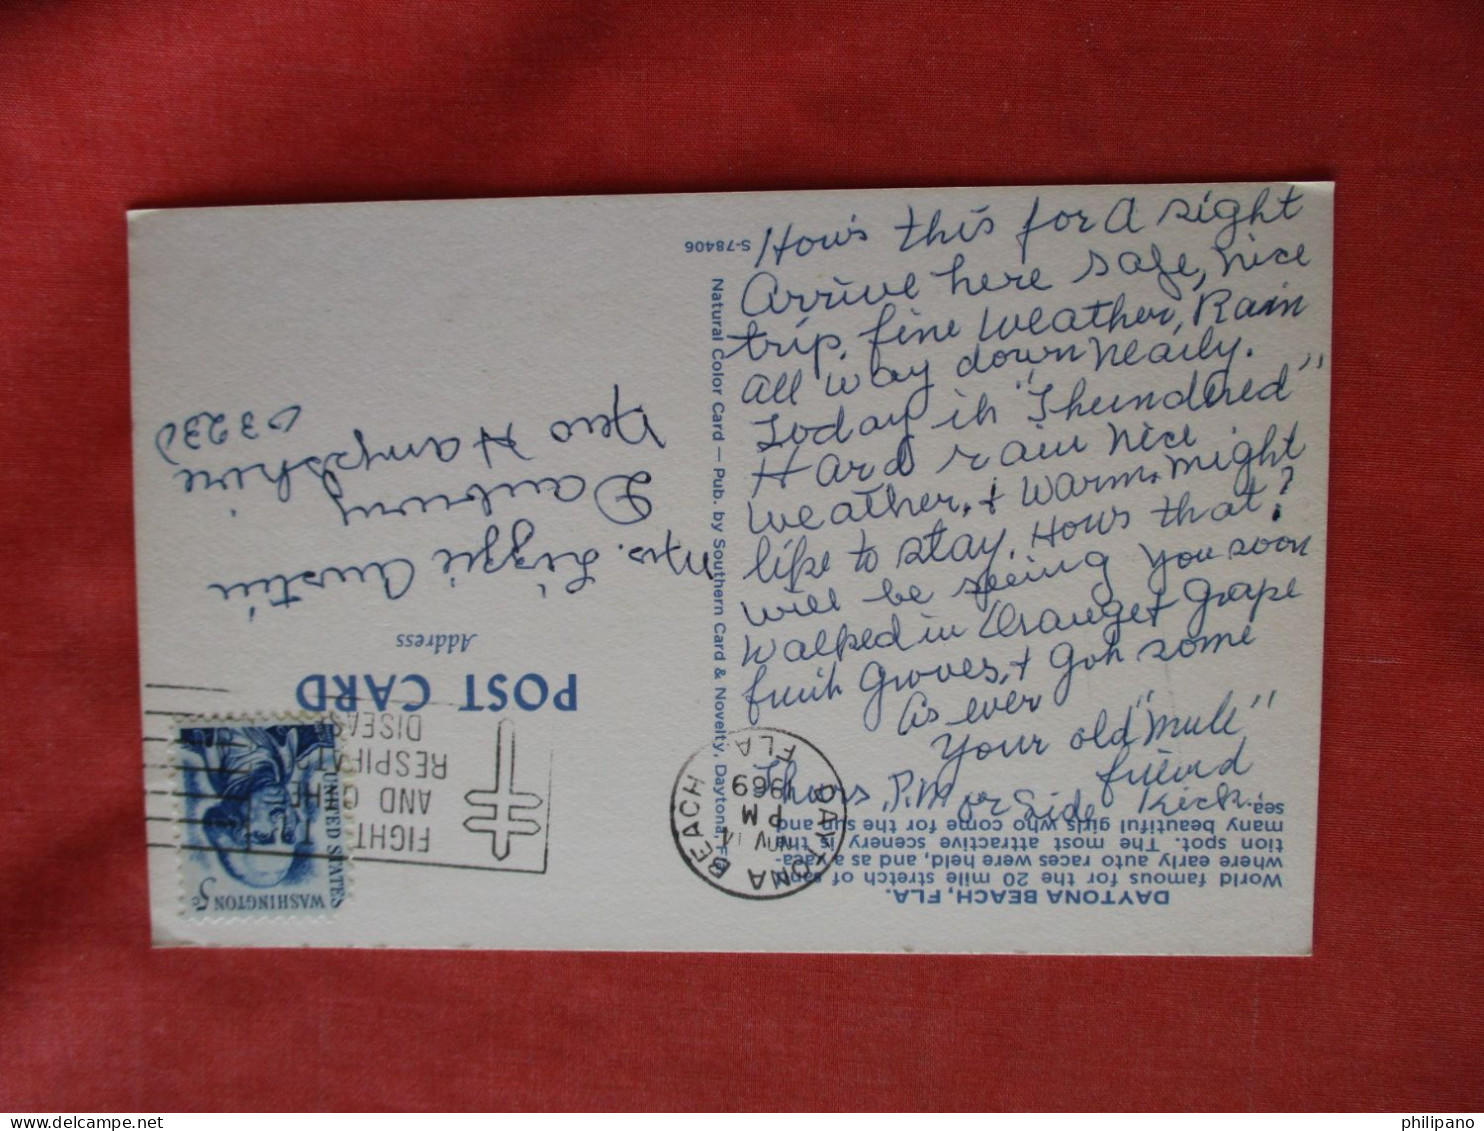 How's this for A sight
Arrive here safe, nice
trip, fine weather, Rain
all way down nearly.
Today it "Thundered"
Hard rain nice
weather, + warm. might
like to stay. Hows that?
will be seeing you soon
walked in Orange + grape
fruit groves, + got some
As ever
Your old "mule"
friend
Thurs. P.M
DAYTONA BEACH, FLA.
World famous for the 20 mile stretch of sand
where early auto races were held, and as a vaca-
tion spot. The most attractive scenery is the
many beautiful girls who come for the sun and
sea.
S-78406
Natural Color Card — Pub. by Southern Card & Novelty, Daytona, Fla
POST CARD
Address
Mrs. Lizzie Austin
Danbury
New Hampshire
03230
DAYTONA BEACH
FLA
PM
NOV 14
1969
FIGHT
AND OTHER
RESPIRATORY
DISEASE
WASHINGTON 5c
UNITED STATES
philipano
philipano.delcampe.net